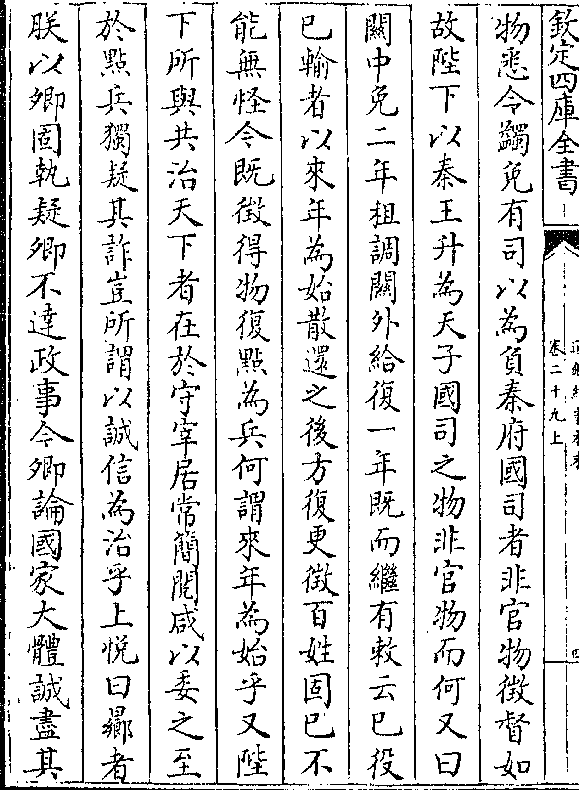 欽定四庫全書
卷二十九上
物悉令蠲免有司以為負秦府國司者非官物徴督如
故陛下以秦王升為天子國司之物非官物而何又曰
關中免二年租調關外給復一年既而繼有敕云已役
已輸者以來年為始散還之後方復更徴百姓固已不
能無怪今既徴得物復點為兵何謂來年為始乎又陛
下所與共治天下者在於守宰居常簡閱咸以委之至
於點兵獨疑其詐豈所謂以誠信為治乎上悦曰曏者
朕以卿固執疑卿不達政事今卿論國家大體誠盡其